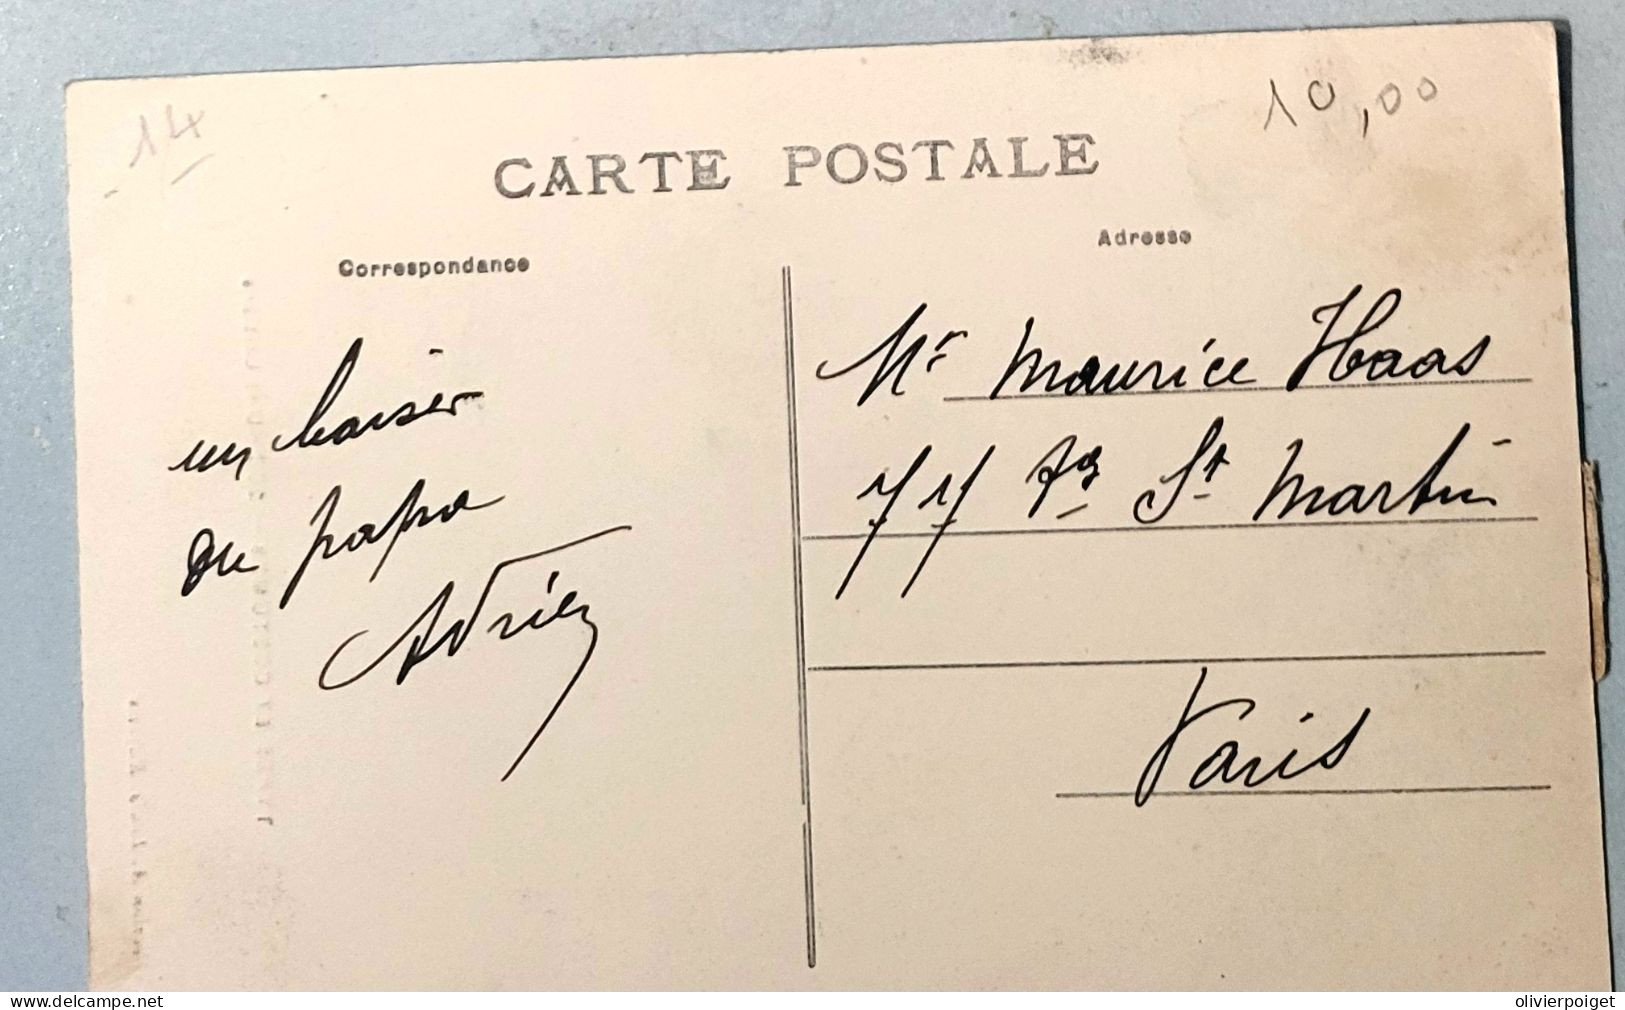 14
10,00
CARTE POSTALE
Correspondance
Adresse
un baiser
au papa
Adrien
Mr Maurice Haas
77 Fg St Martin
Paris
www.delcampe.net
olivierpoiget